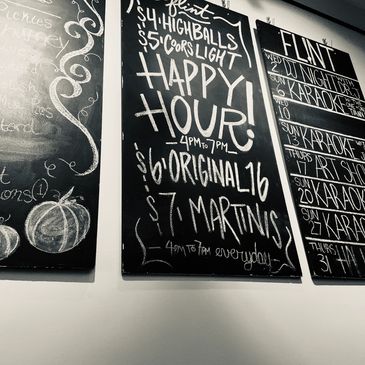 Pickles
tard
ions(1)
flint
$4 HIGHBALLS
$5 COORS LIGHT
HAPPY
HOUR!
4PM TO 7PM
$6 ORIGINAL 16
$7 MARTINIS
4PM TO 7PM everyday
FLINT
WED 2 DJ NIGHT
KARAOKE
10
13 KARAOKE
THURS ART SHO
SUN 20 KARAOK
SUN 27 KARAO
THURS 31